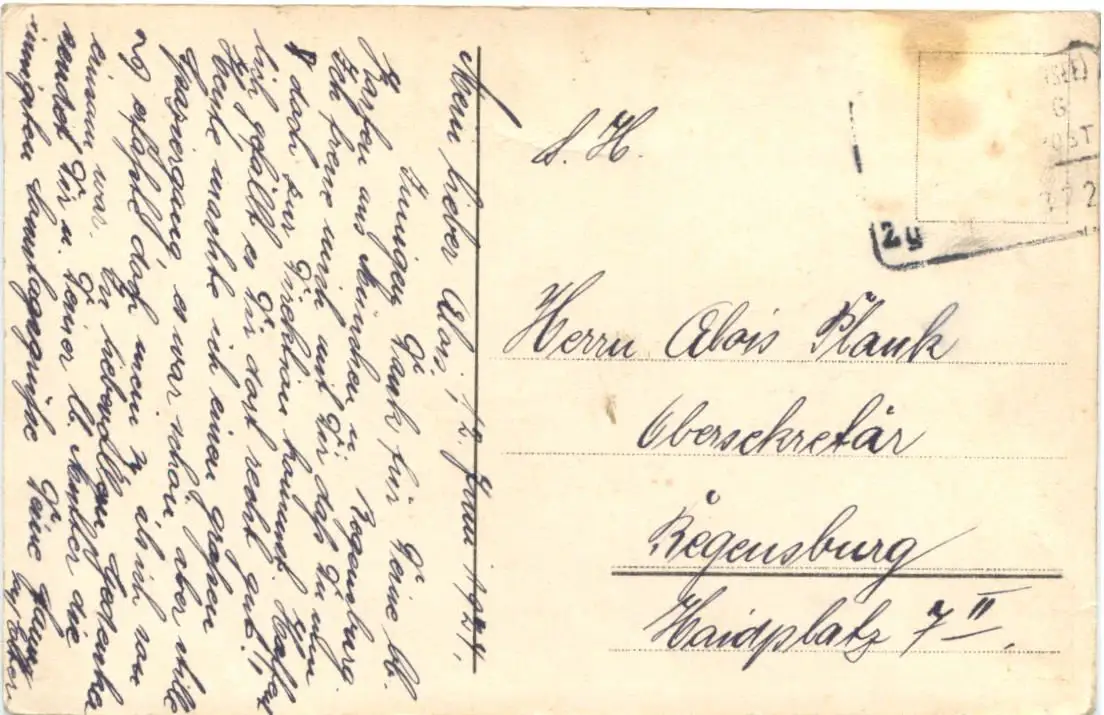 Mein lieber Alois, 12. Juni 1924.
Innigen Dank für Deine lb.
Karten aus München u. Regensburg.
Ich freue mich mit Dir daß Du nun
doch zur Direktion kommst. Hoffent
lich gefällt es Dir dort recht gut!
Heute machte ich einen großen
Spaziergang, es war schön aber viele
erzählt doch mehr als ich
einmal war. In liebevollem Gedenken
sendet Dir u. Deiner lb. Mutter die
innigsten Samstagsgrüße Deine
S. H.
Herrn Alois Plank
Obersekretär
Regensburg
Haidplatz 7 II.
POST
2y